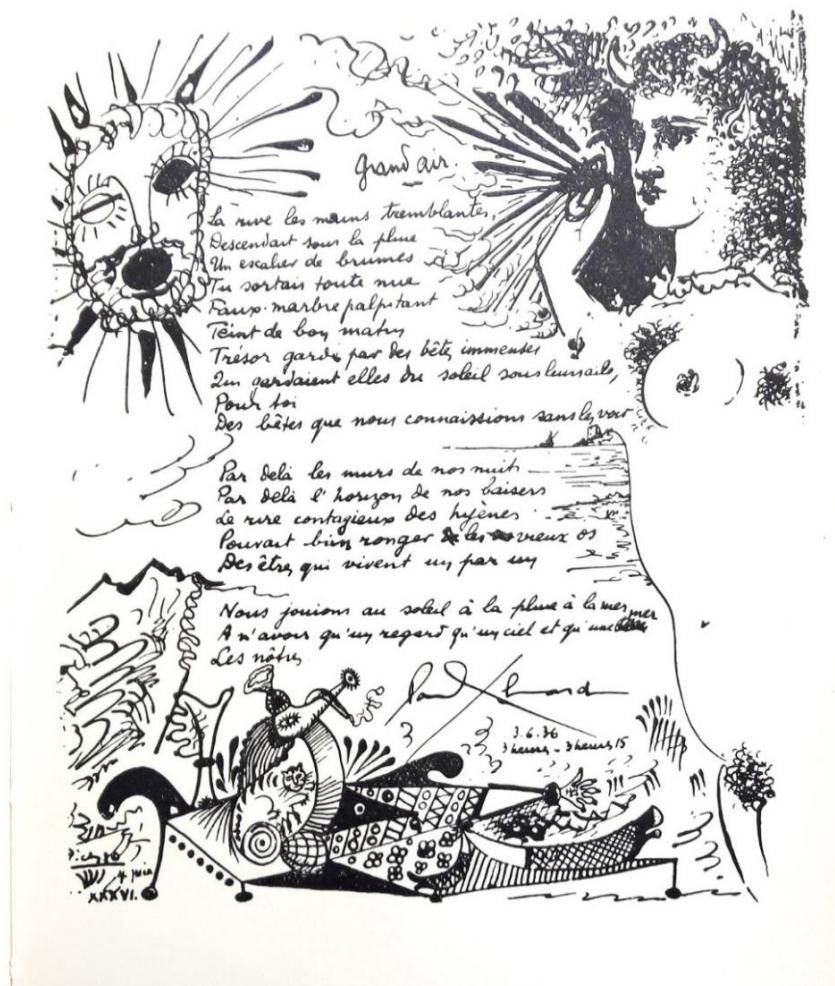 grand air.
La rive les mains tremblantes,
Descendait sous la pluie
Un escalier de brumes
Tu sortais toute nue
Faux marbre palpitant
Teint de bon matin
Trésor gardé par des bêtes immenses
Qui gardaient elles du soleil sous leurs ailes,
Pour toi
Des bêtes que nous connaissions sans les voir
Par delà les murs de nos nuits
Par delà l'horizon de nos baisers
Le rire contagieux des hyènes
Pouvait bien ronger les vieux os
Des êtres qui vivent un par un
Nous jouions au soleil à la pluie à la mer
A n'avoir qu'un regard qu'un ciel et qu'une mer
Les nôtres
Paul Eluard
3.6.36
3 heures - 3 heures 15
Picasso
4 juin
XXXVI.